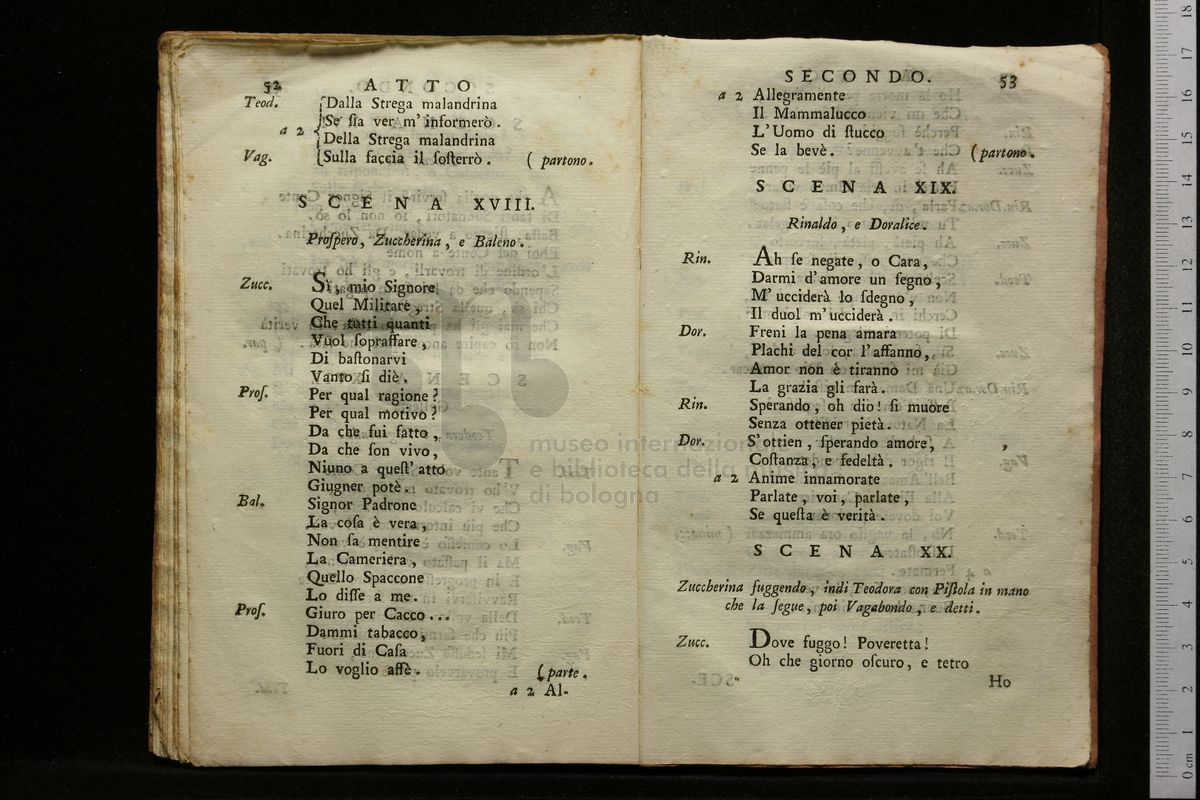 52 ATTO
Teod. Dalla Strega malandrina
Se ſia ver m'informerò.
a 2
Della Strega malandrina
Vag. Sulla faccia il ſoſterrò. ( partono.
SCENA XVIII.
Proſpero, Zuccherina, e Baleno.
Zucc. Sì, mio Signore
Quel Militare,
Che tutti quanti
Vuol ſopraffare,
Di baſtonarvi
Vanto ſi diè.
Proſ. Per qual ragione?
Per qual motivo?
Da che fui fatto,
Da che ſon vivo,
Niuno a queſt' atto
Giugner potè.
Bal. Signor Padrone
La coſa è vera,
Non ſa mentire
La Cameriera,
Quello Spaccone
Lo diſſe a me.
Proſ. Giuro per Cacco...
Dammi tabacco,
Fuori di Caſa
Lo voglio affè. (parte.
a 2 Al-
SECONDO. 53
a 2 Allegramente
Il Mammalucco
L'Uomo di ſtucco
Se la bevè. (partono.
SCENA XIX.
Rinaldo, e Doralice.
Rin. Ah ſe negate, o Cara,
Darmi d'amore un ſegno,
M' ucciderà lo ſdegno,
Il duol m'ucciderà.
Dor. Freni la pena amara
Plachi del cor l'affanno,
Amor non è tiranno
La grazia gli farà.
Rin. Sperando, oh dio! ſi muore
Senza ottener pietà.
Dor. S'ottien, ſperando amore,
Coſtanza, e fedeltà.
a 2 Anime innamorate
Parlate, voi, parlate,
Se queſta è verità.
SCENA XX.
Zuccherina fuggendo, indi Teodora con Piſtola in mano
che la ſegue, poi Vagabondo, e detti.
Zucc. Dove fuggo! Poveretta!
Oh che giorno oſcuro, e tetro
Ho
museo internazionale
e biblioteca della musica
di bologna
0 cm 1 2 3 4 5 6 7 8 9 10 11 12 13 14 15 16 17 18